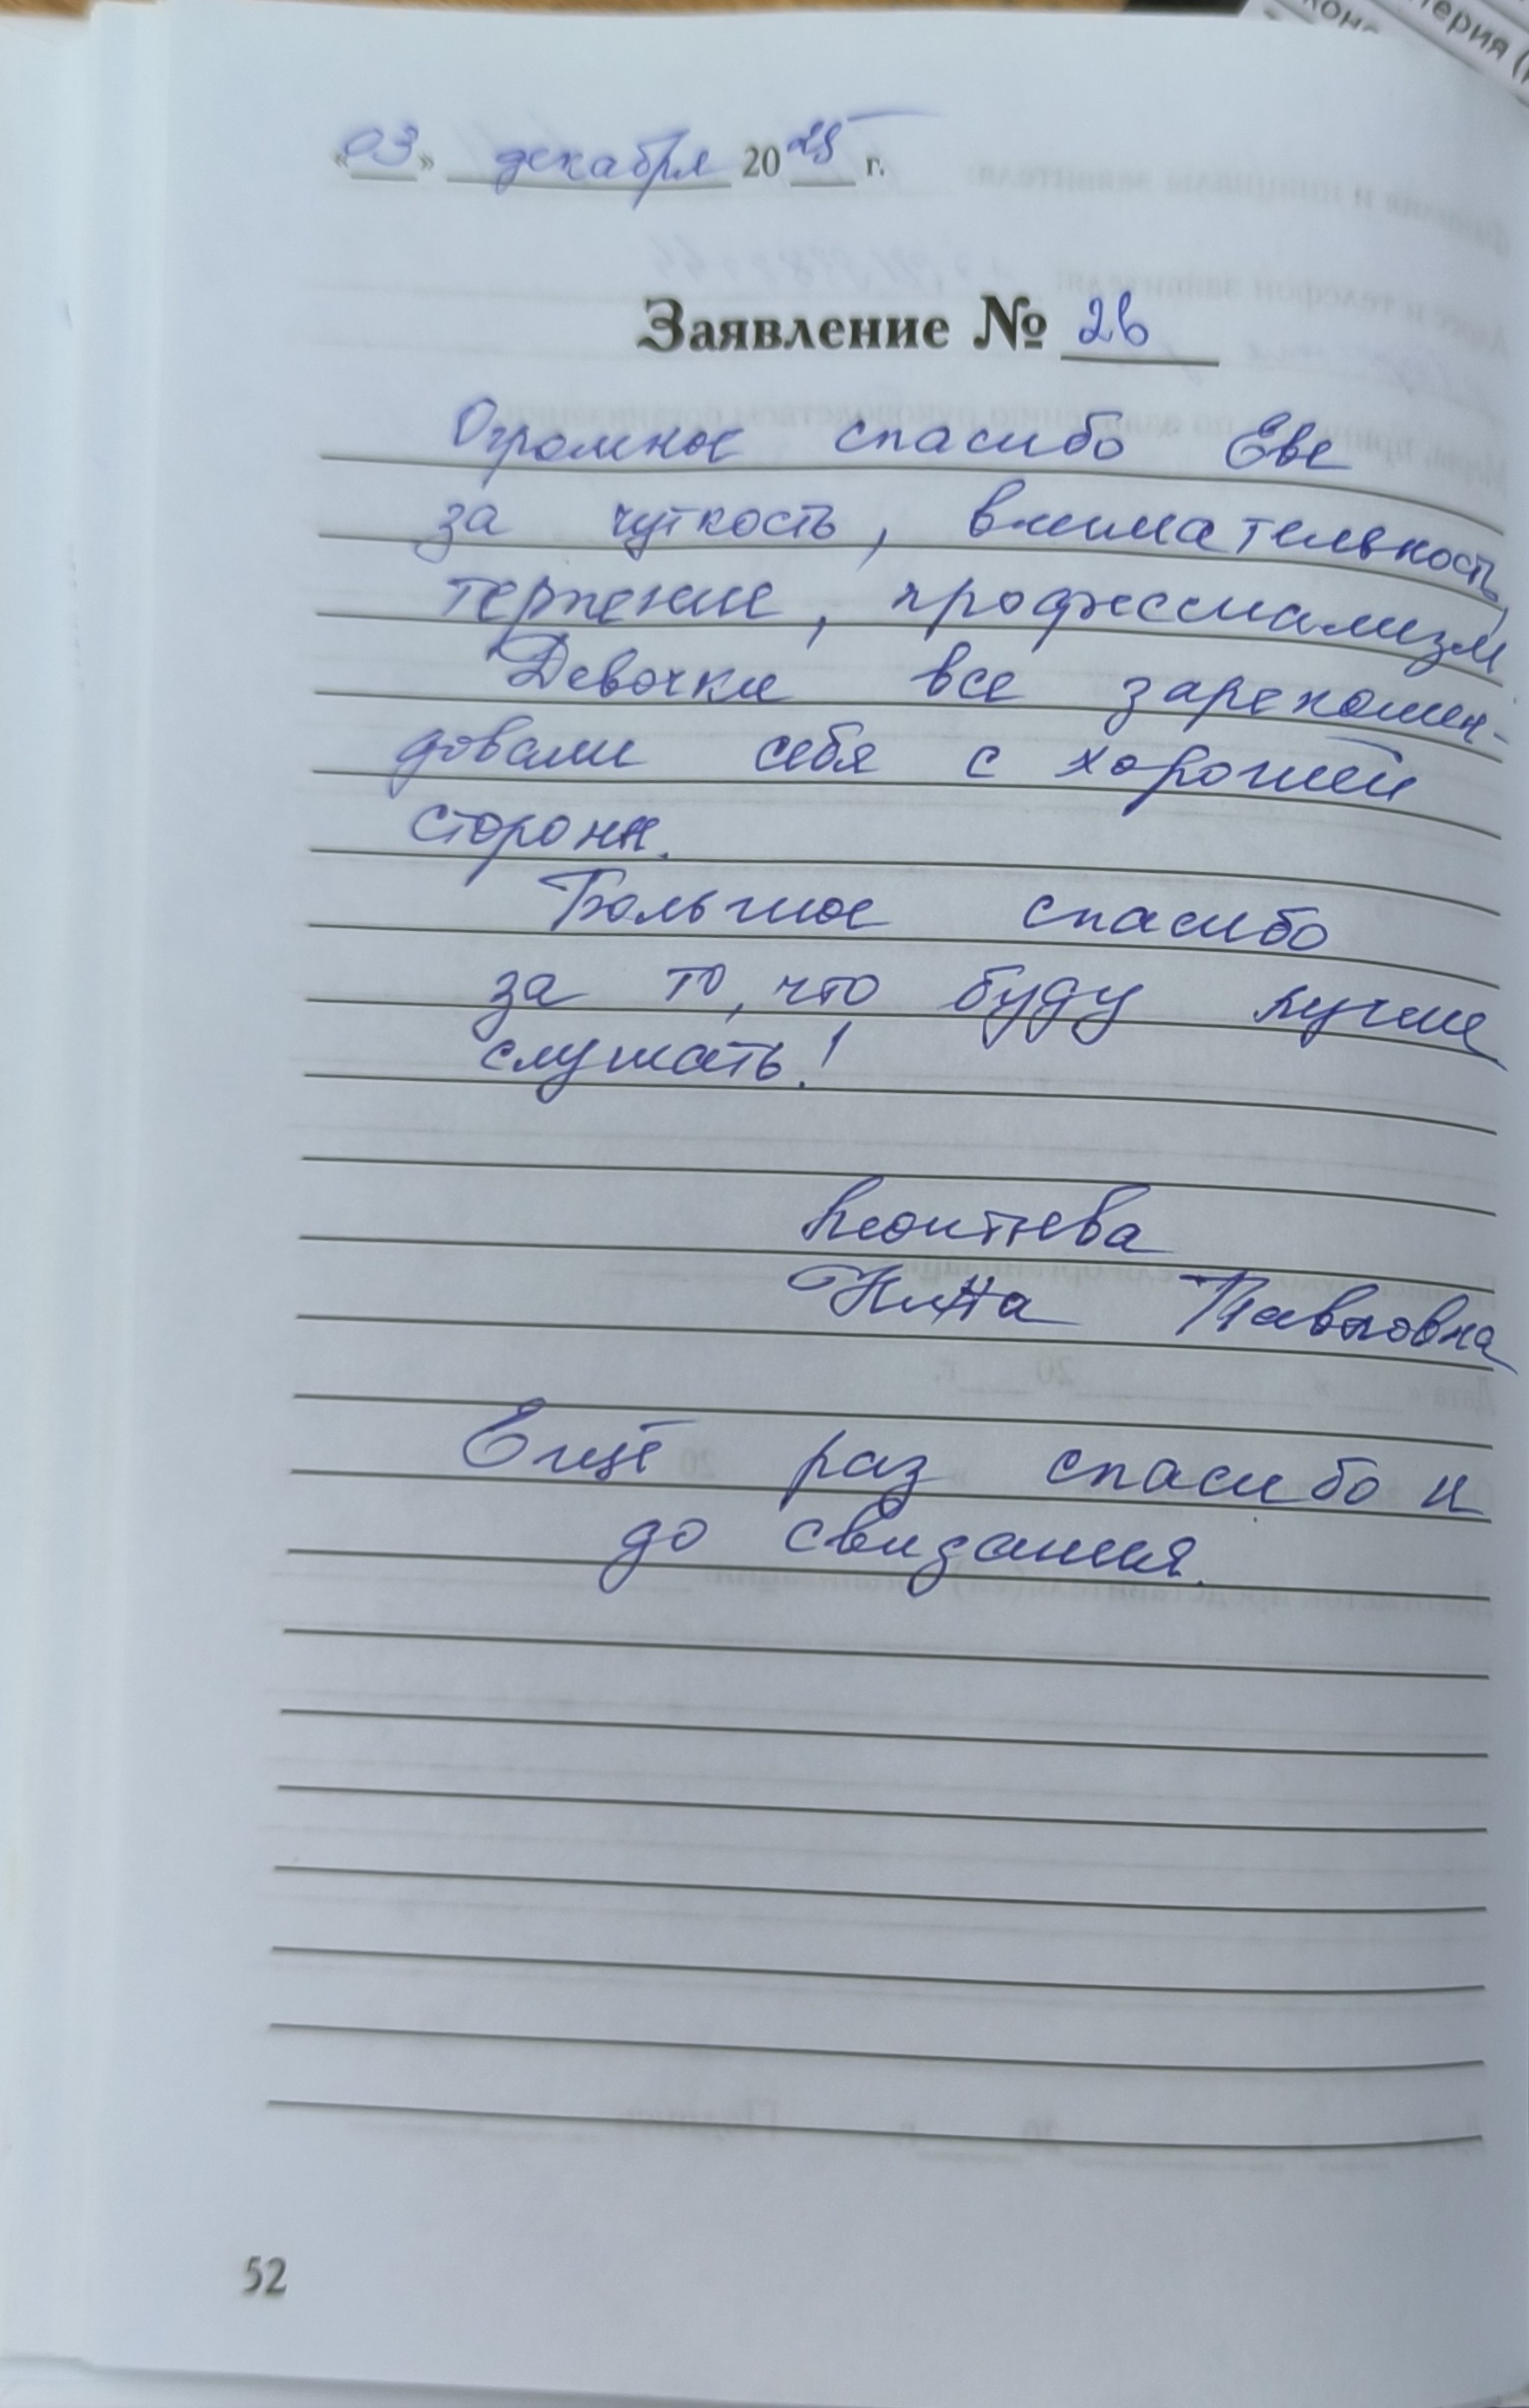 «03» декабря 2025 г.
Заявление № 26
Огромное спасибо Еве
за чуткость, внимательность,
терпение, профессиализм
Девочки все зарекомен-
довали себя с хорошей
стороны.
Большое спасибо
за то, что буду лучше
слушать!
Леонтьева
Нина Павловна
Ещё раз спасибо и
до свидания.
52